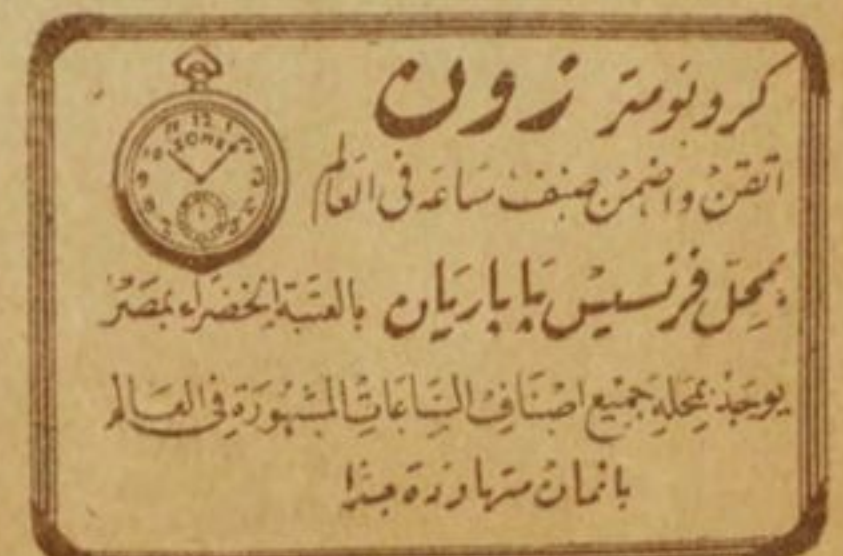 كرونومتر زون
اتقن واضمن صنف ساعه في العالم
بمحل فرنسيس پاپاريان بالعتبة الخضراء بمصر
يوجد بمحله جميع اصناف الساعات المشهورة في العالم
باثمان متهاودة جدا